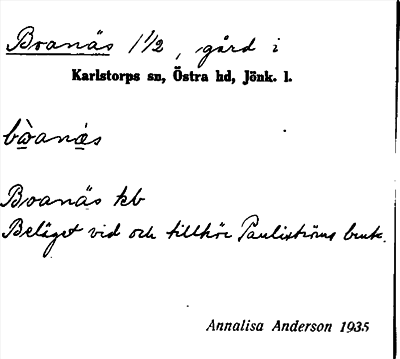 Boanäs 1 1/2, gård i
Karlstorps sn, Östra hd, Jönk. l.
bòanäs
Boanäs kb
Beläget vid och tillhör Pauliströms bruk.
Annalisa Anderson 1935